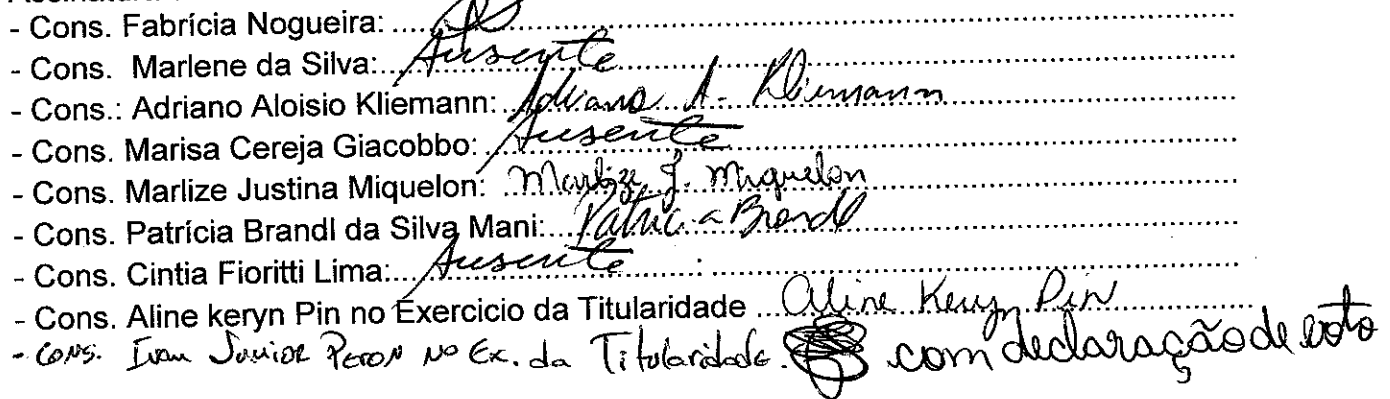 - Cons. Fabrícia Nogueira: ........
- Cons. Marlene da Silva: ........ Ausente ........
- Cons.: Adriano Aloisio Kliemann: ........ Adriano A. Kliemann ........
- Cons. Marisa Cereja Giacobbo: ........ Ausente ........
- Cons. Marlize Justina Miquelon: ........ Marlize J. Miquelon ........
- Cons. Patrícia Brandl da Silva Mani: ........ Patricia Brandl ........
- Cons. Cintia Fioritti Lima: ........ Ausente ........
- Cons. Aline keryn Pin no Exercicio da Titularidade ........ Aline Keryn Pin ........
- Cons. Ivan Junior Peron no Ex. da Titularidade. com declaração de voto